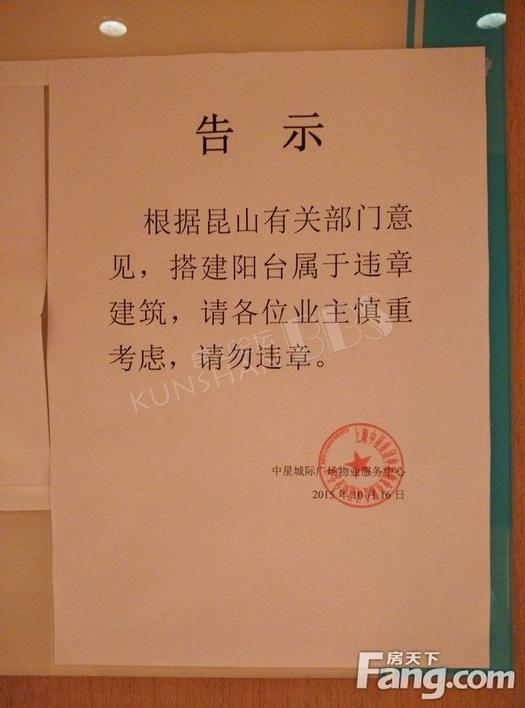 告 示
根据昆山有关部门意
见，搭建阳台属于违章
建筑，请各位业主慎重
考虑，请勿违章。
KUNSHAN BBS
中星城际广场物业服务中心
2015年10月16日
房天下
Fang.com